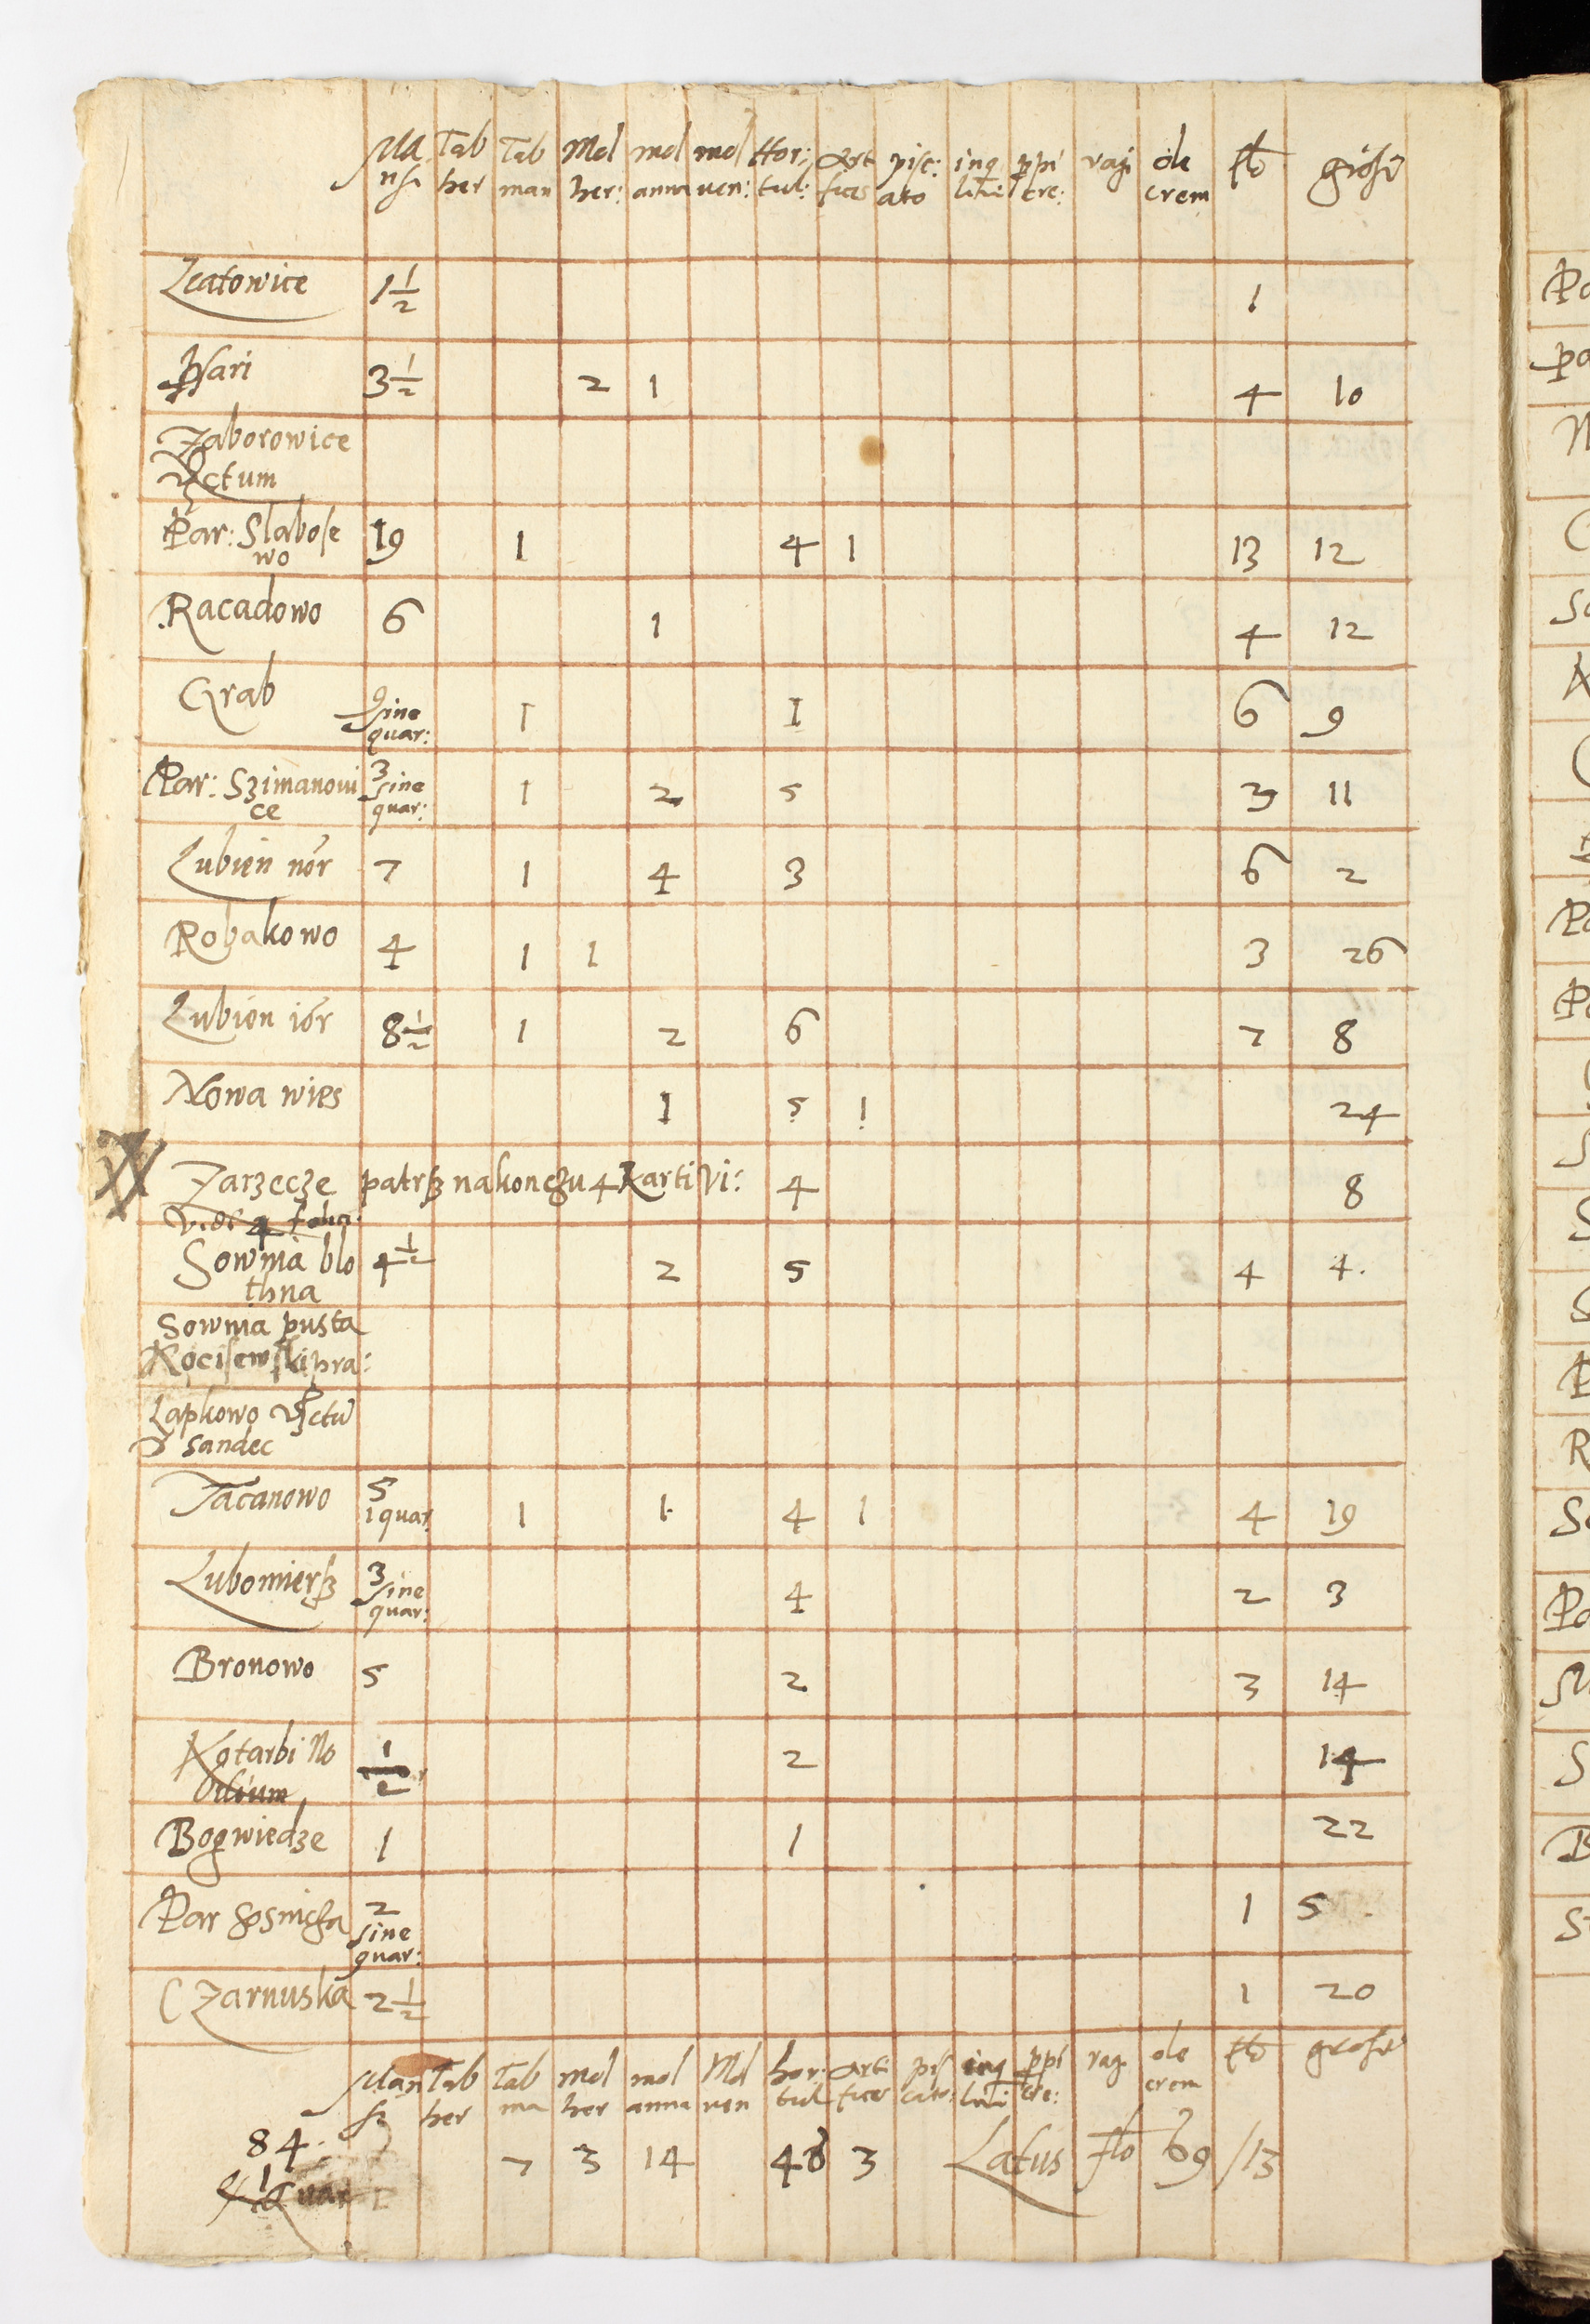 Ma Tab Tab Mol mol mol Hor: Art pisc: inq ppi vagi ole flo grosi
nsi her man her: anna ven: tul: fices ato lini cre: crem
Zcatowice 1 1/2 1
Psari 3 1/2 2 1 4 10
Zaborowice
Par: Slabose 19 1 4 1 13 12
wo
Racadowo 6 1 4 12
Grab 9 sine 1 1 6 9
quar:
Par: Szimanoui 3 sine 1 2 5 3 11
ce quar:
Lubien nor 7 1 4 3 6 2
Robakowo 4 1 1 3 26
Lubien ior 8 1/2 1 2 6 7 8
Nowa wies 1 5 1 24
Zarzecze patrz na konczu 4 Karti Vi: 4 8
Sowina blo 4 1/2 2 5 4 4.
thna
Sowina pusta
Kocisewski pra:
Lapkowo
sandec
Tacanowo 5 1 1 4 1 4 19
1 quar
Lubomierz 3 4 2 3
sine
quar:
Bronowo 5 2 3 14
Kotarbi No 1/2 2 14
bilium
Bogwiedze 1 1 22
Par gosnicza 2 1 5
sine
quar:
Czarnuska 2 1/2 1 20
Man Tab Tab mol mol Mol hor: Arti pis inq ppi vag ole flo grosi
her ma her anna ven tul fices cato: lini cre: crem
84. 7 3 14 48 3 Latus flo 69/13
1 quar